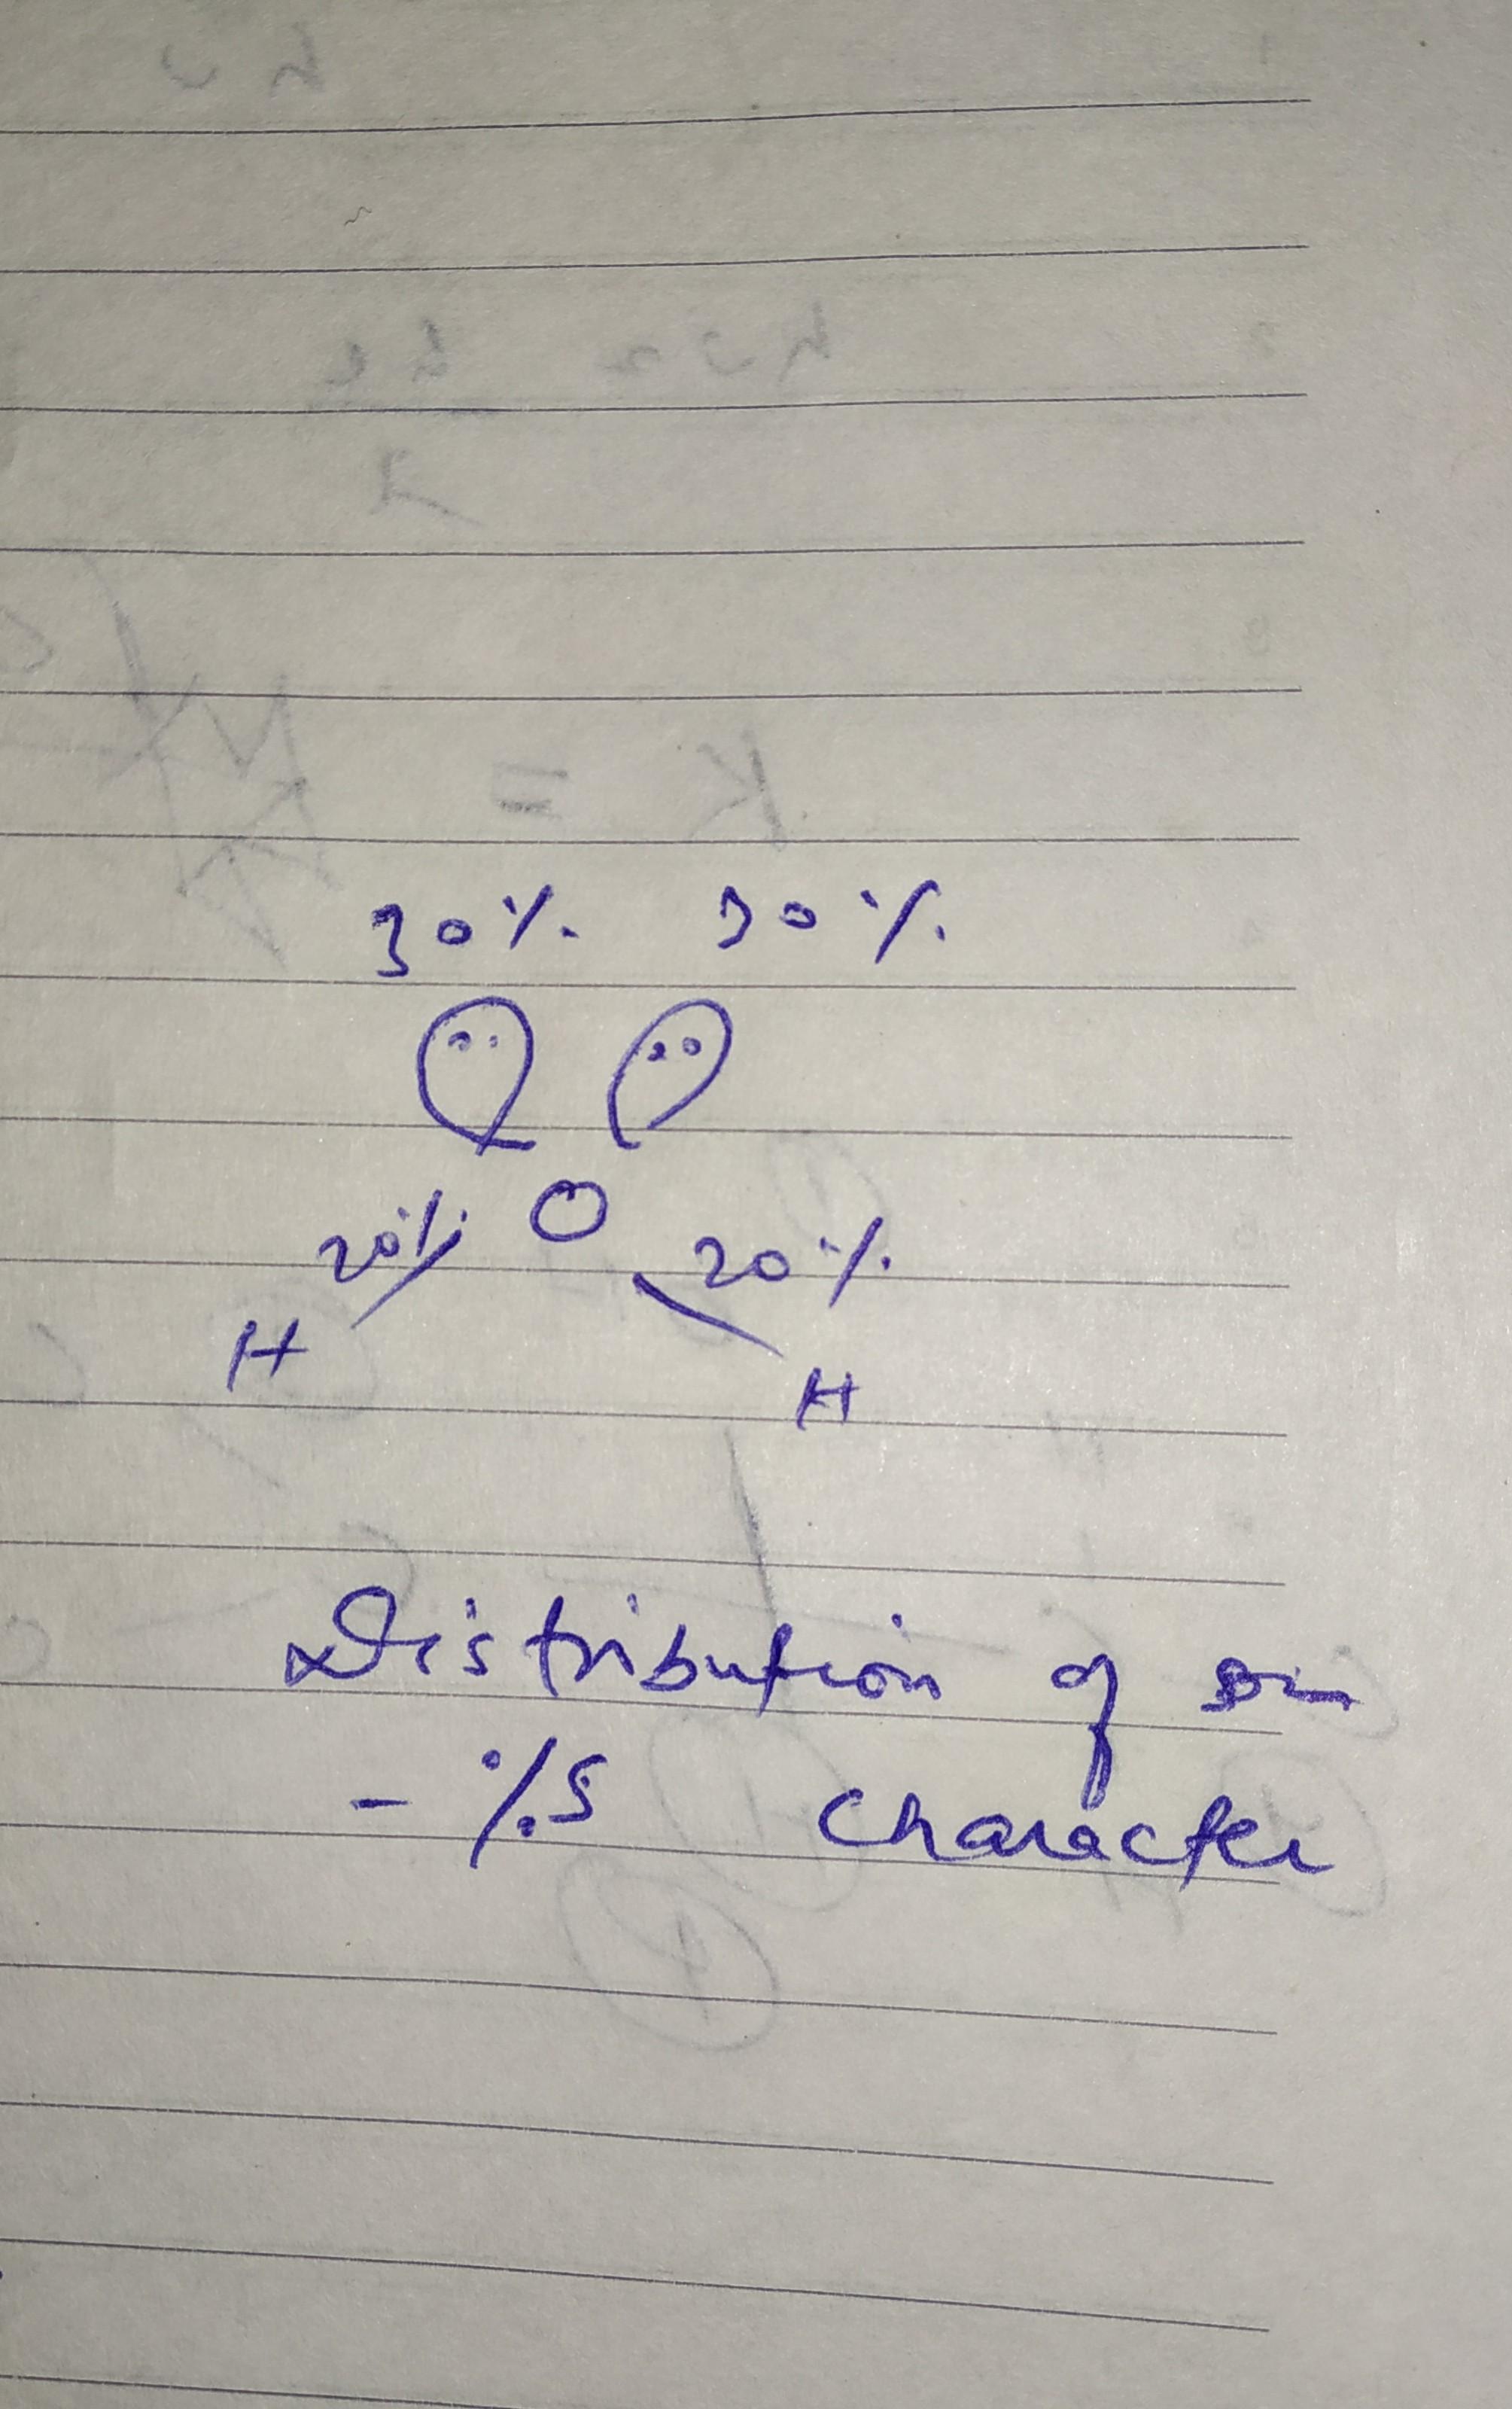 30% 30%
O
20% 20%
H
H
Distribution of
- %S character